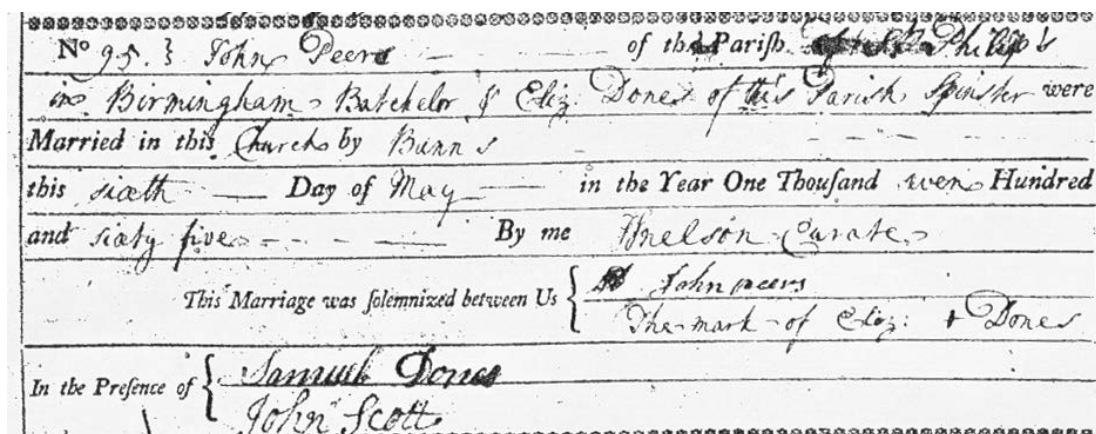 No 95. } John Peers of the Parish of St. Philip's
in Birmingham Batchelor & Eliz. Dones of this Parish Spinster were
Married in this Church by Banns
this sixth Day of May in the Year One Thouſand seven Hundred
and sixty five By me Curate
This Marriage was ſolemnized between Us { John peers
The mark of Eliz: + Dones
In the Preſence of { Samuel Dones
John Scott